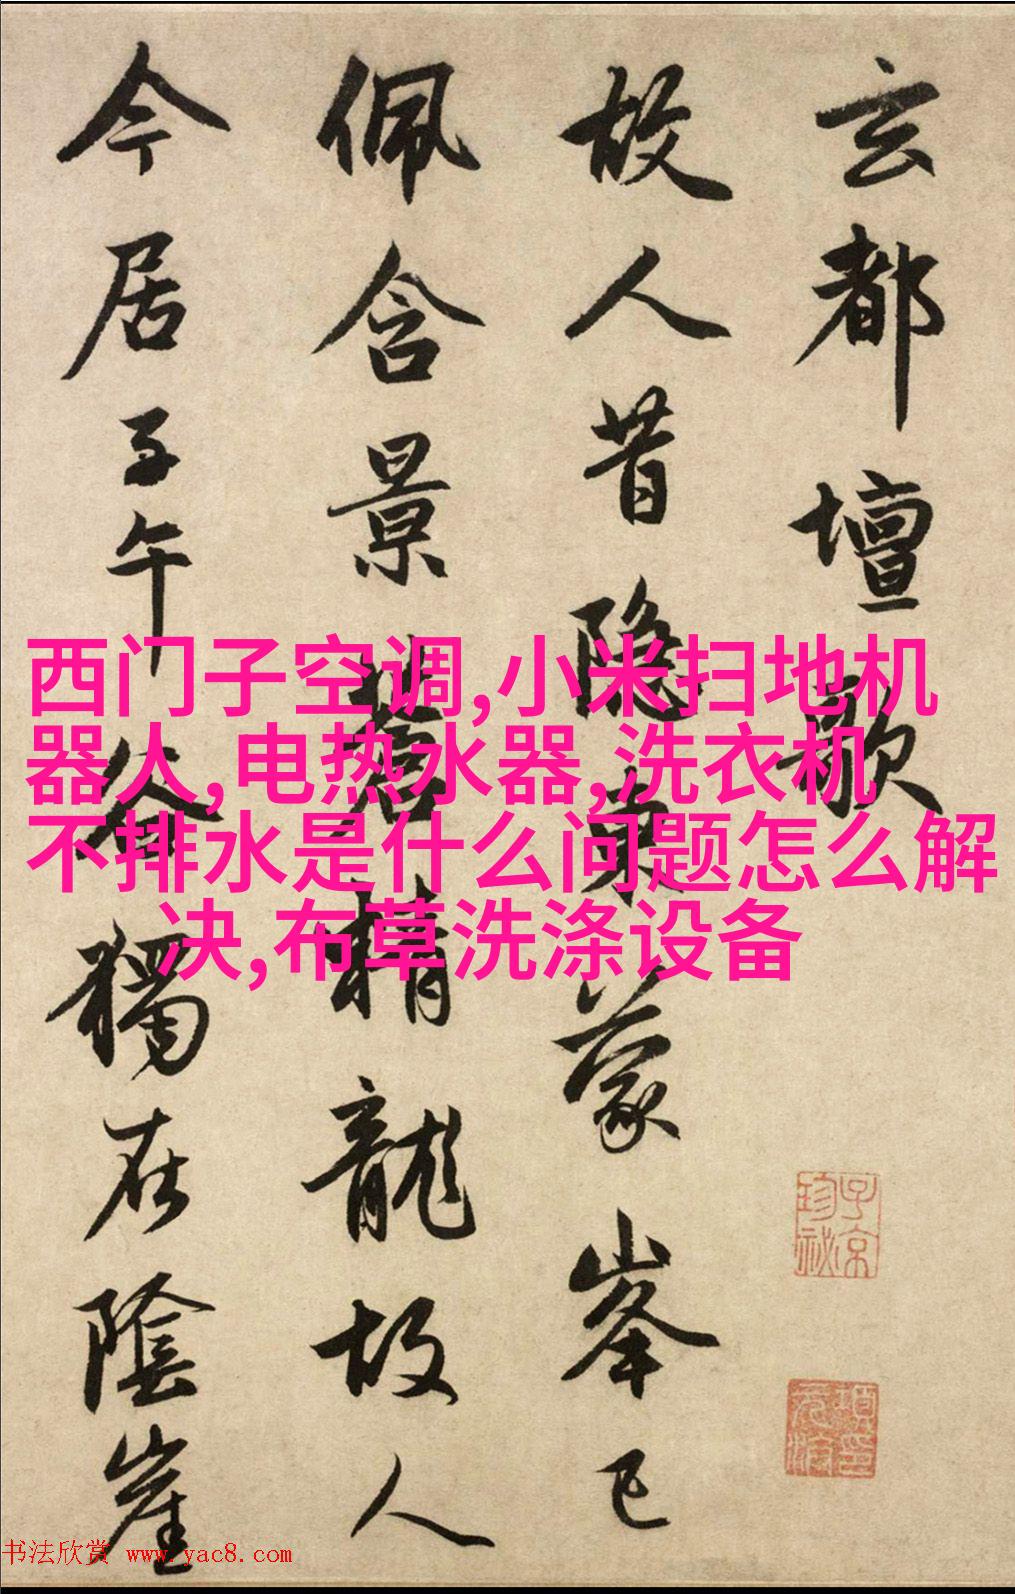 玄都壇歌
故人昔隐東蒙峯已
佩含景蒼精龍故人
今居子午谷獨在陰崖
西门子空调,小米扫地机
器人,电热水器,洗衣机
不排水是什么问题怎么解
决,布草洗涤设备
子京
珍祕
书法欣赏 www.yac8.com